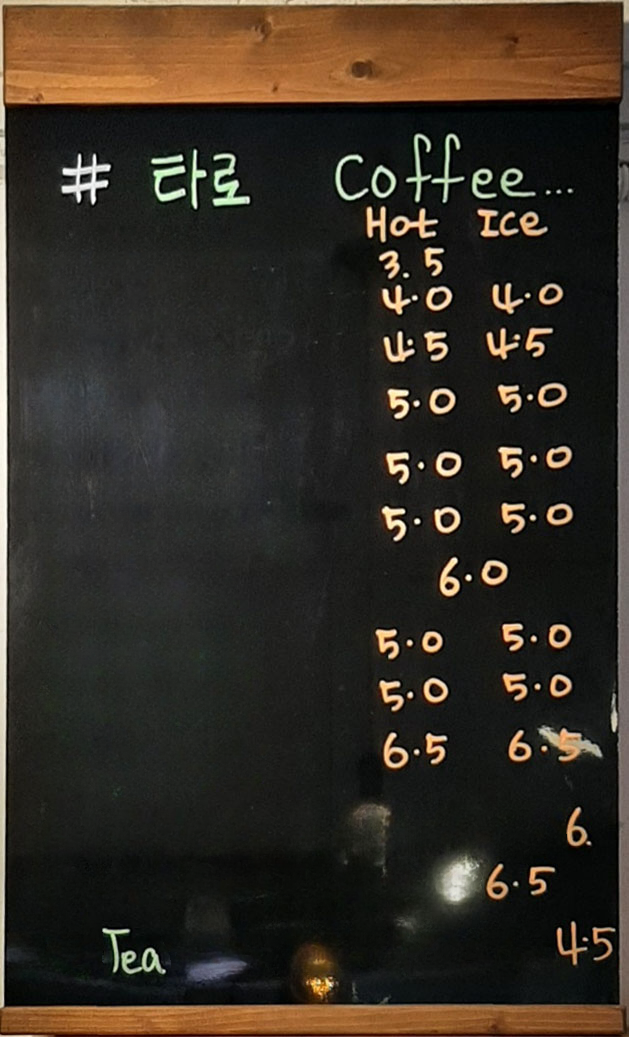 # 타로 Coffee...
Hot Ice
3.5
4.0 4.0
4.5 4.5
5.0 5.0
5.0 5.0
5.0 5.0
6.0
5.0 5.0
5.0 5.0
6.5 6.5
6.
6.5
Tea 4.5